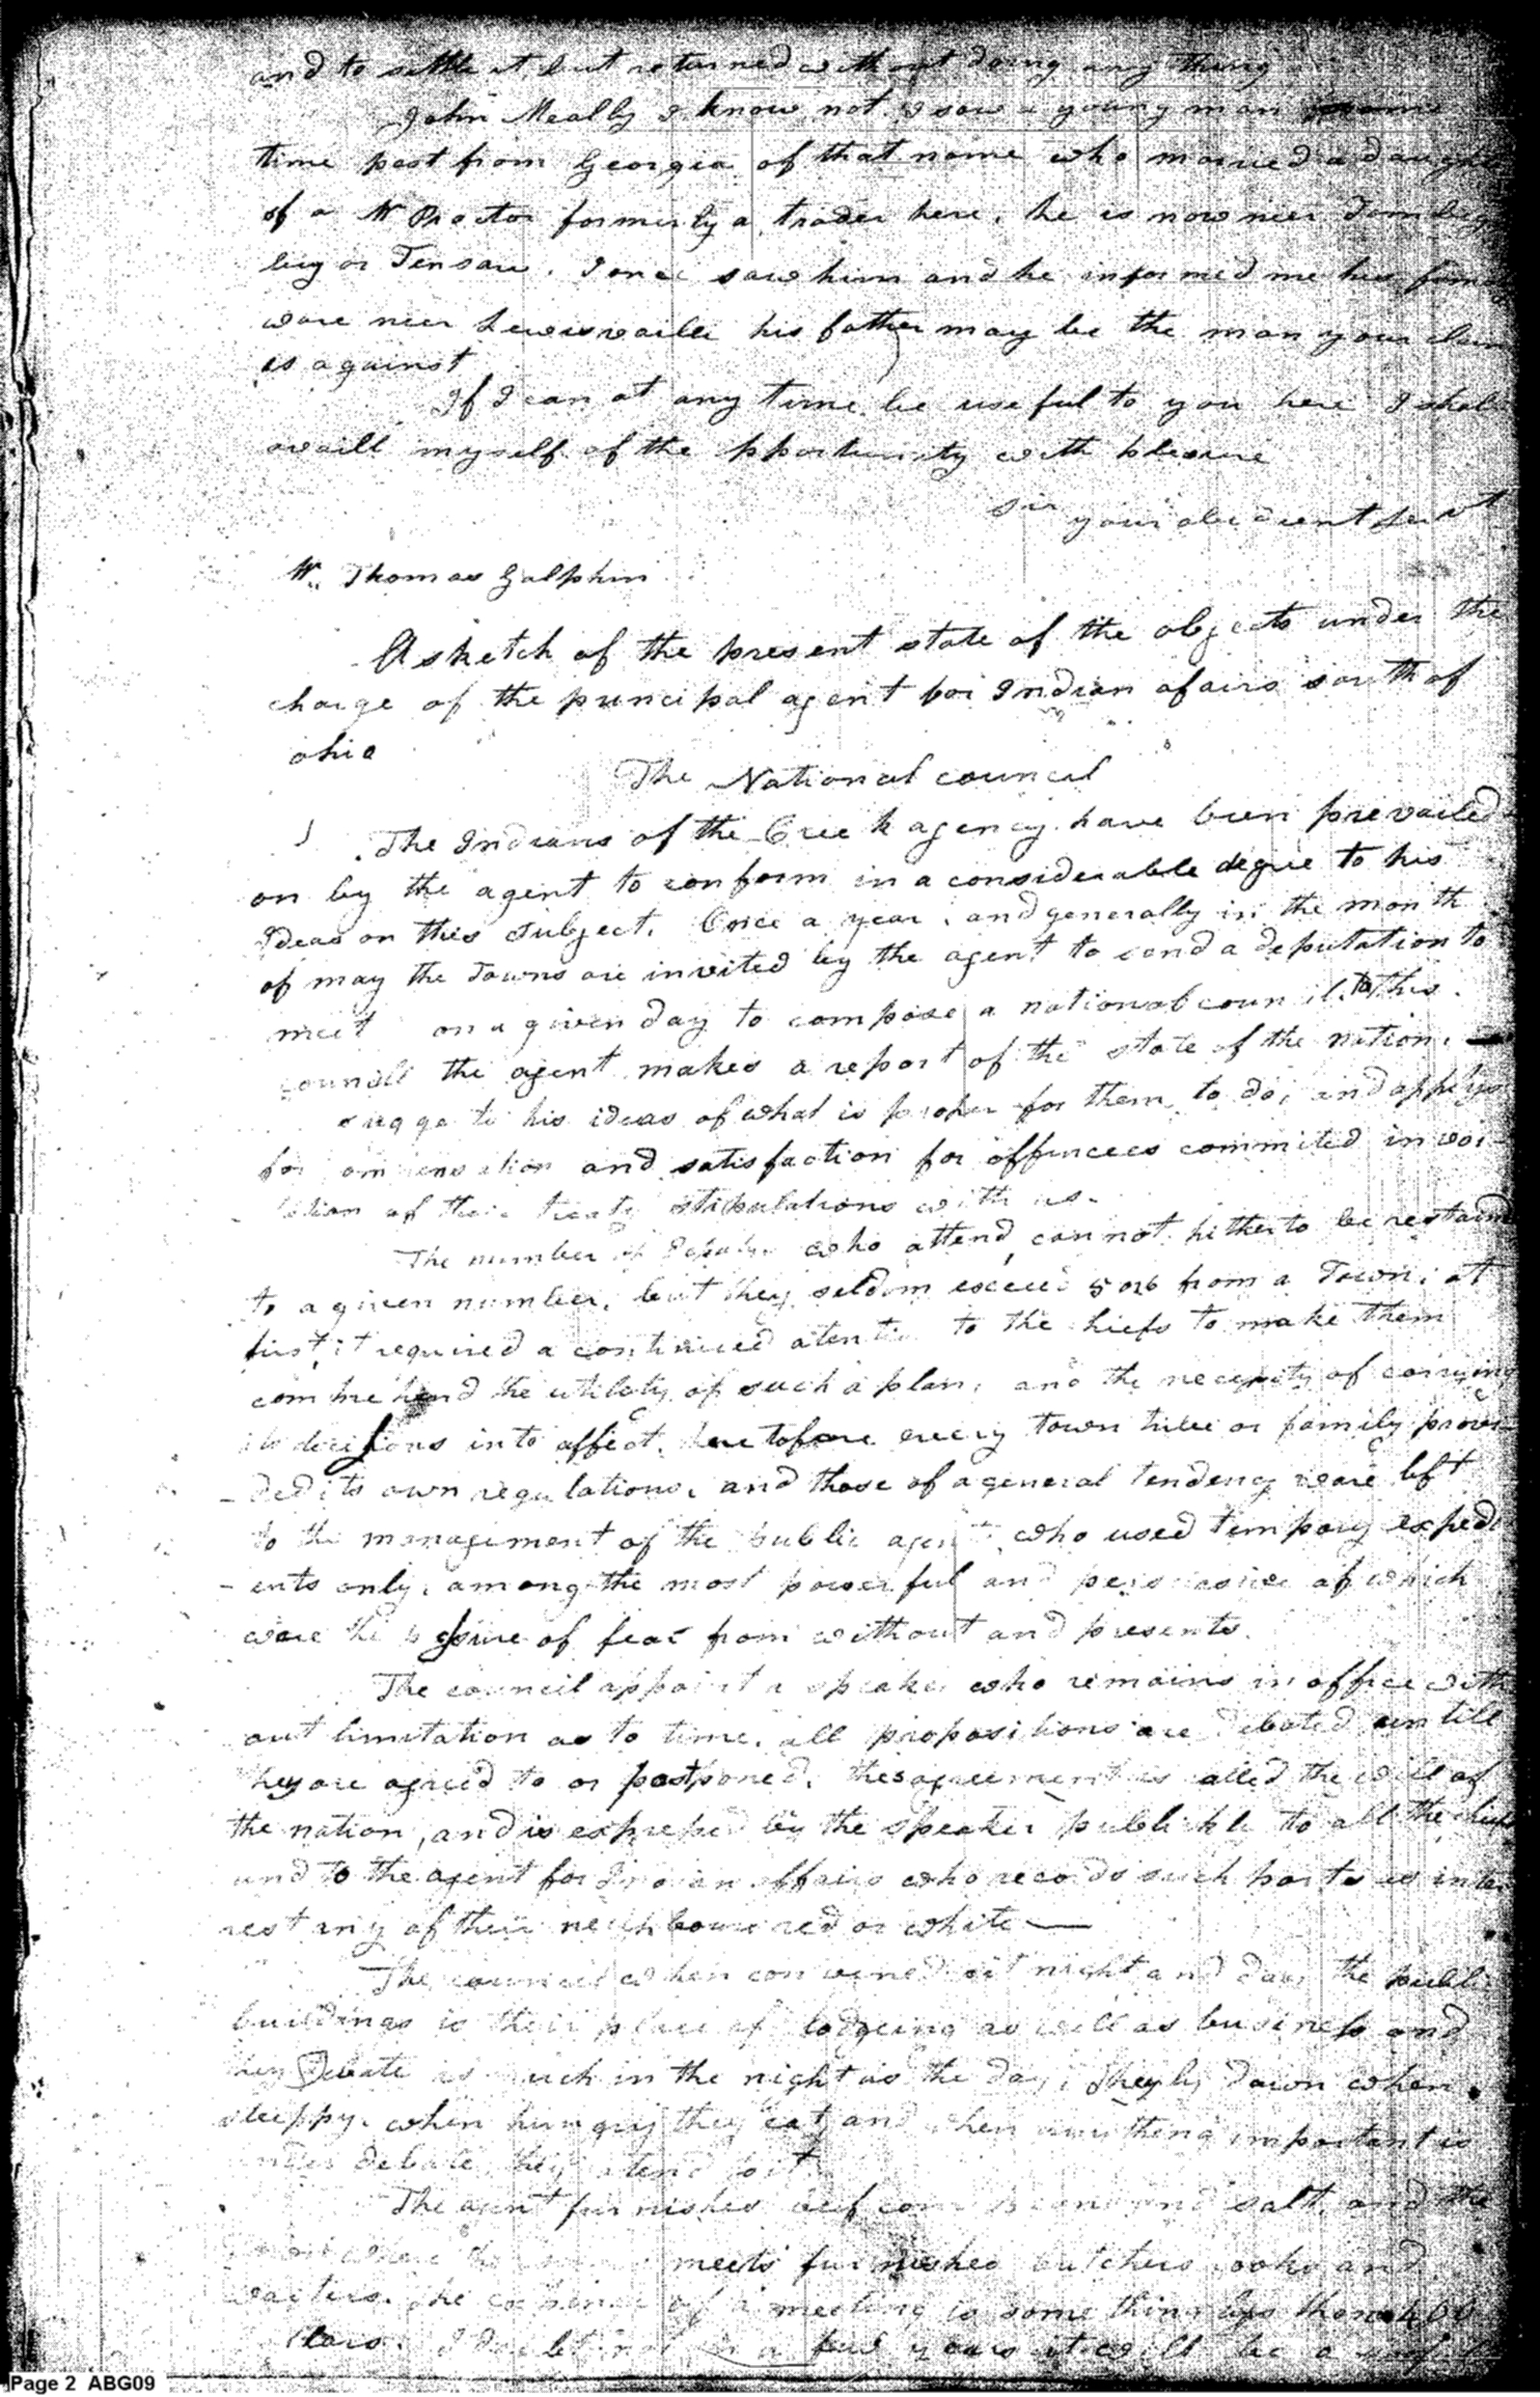 and to settle it but returned without doing any thing
John Meally I know not. I saw a young man some
time past from Georgia of that name who married a daugh
of a Mr Proctor formerly a trader here, he is now near Tombig
bey or Tensaw. I once saw him and he informed me his fam
ware near Lewisvaille his father may be the man your claim
is against
If I can at any time be useful to you here I shal
availl myself of the pportunity with pleasure
Sir your obedient servt
Mr. Thomas Galphin
A sketch of the present state of the objects under the
charge of the principal agent for Indian afairs south of
ohio
The National council
The Indians of the Creek agency have been prevailed
on by the agent to conform in a considerable degree to his
Ideas on this subject. Once a year, and generally in the month
of may the Towns are invited by the agent to send a deputation to
meet on a given day to compose a national council. to this
council the agent makes a report of the state of the nation,
his ideas of what is proper for them to do, and applys
for and satisfaction for offences commited in voi-
lation of their treaty stipulations with us.
The number of who attend cannot hitherto be restaind
to a given number, but they seldom exceed 5 or 6 from a Town; at
first it required a continued to the chiefs to make them
comprehend the utility of such a plan, and the necessity of carrying
its decissions into affect. heretofore every town tribe or family provi-
-ded its own regulations, and those of a general tendency ware left
to the management of the public agent who used tempory exped
-ents only, among the most powerful and persuasive of which
ware the of fear from without and presents.
The council appoint a speaker who remains in office with
out limitation as to time. all propositions are debated untill
they are agreed to or postponed. the agreement is called the will of
the nation, and is expressed by the speaker to all the chiefs
and to the agent for Indian affairs who records such parts as inte
rest any of their neighbours red or white
The council when convened sit night and day, the publi
buildings is their place of lodgeing as well as business and
they Debate as much in the night as the day, they ly down when
sleippy. when hungry they eat, and when any thing important is
under debate they atend to it.
The agent furnishes beef corn beans and salt, and the
meets furnishes butchers cooks and
waiters. The expence of a meeting is some thing less than 400
in a few years it will be a
Page 2 ABG09